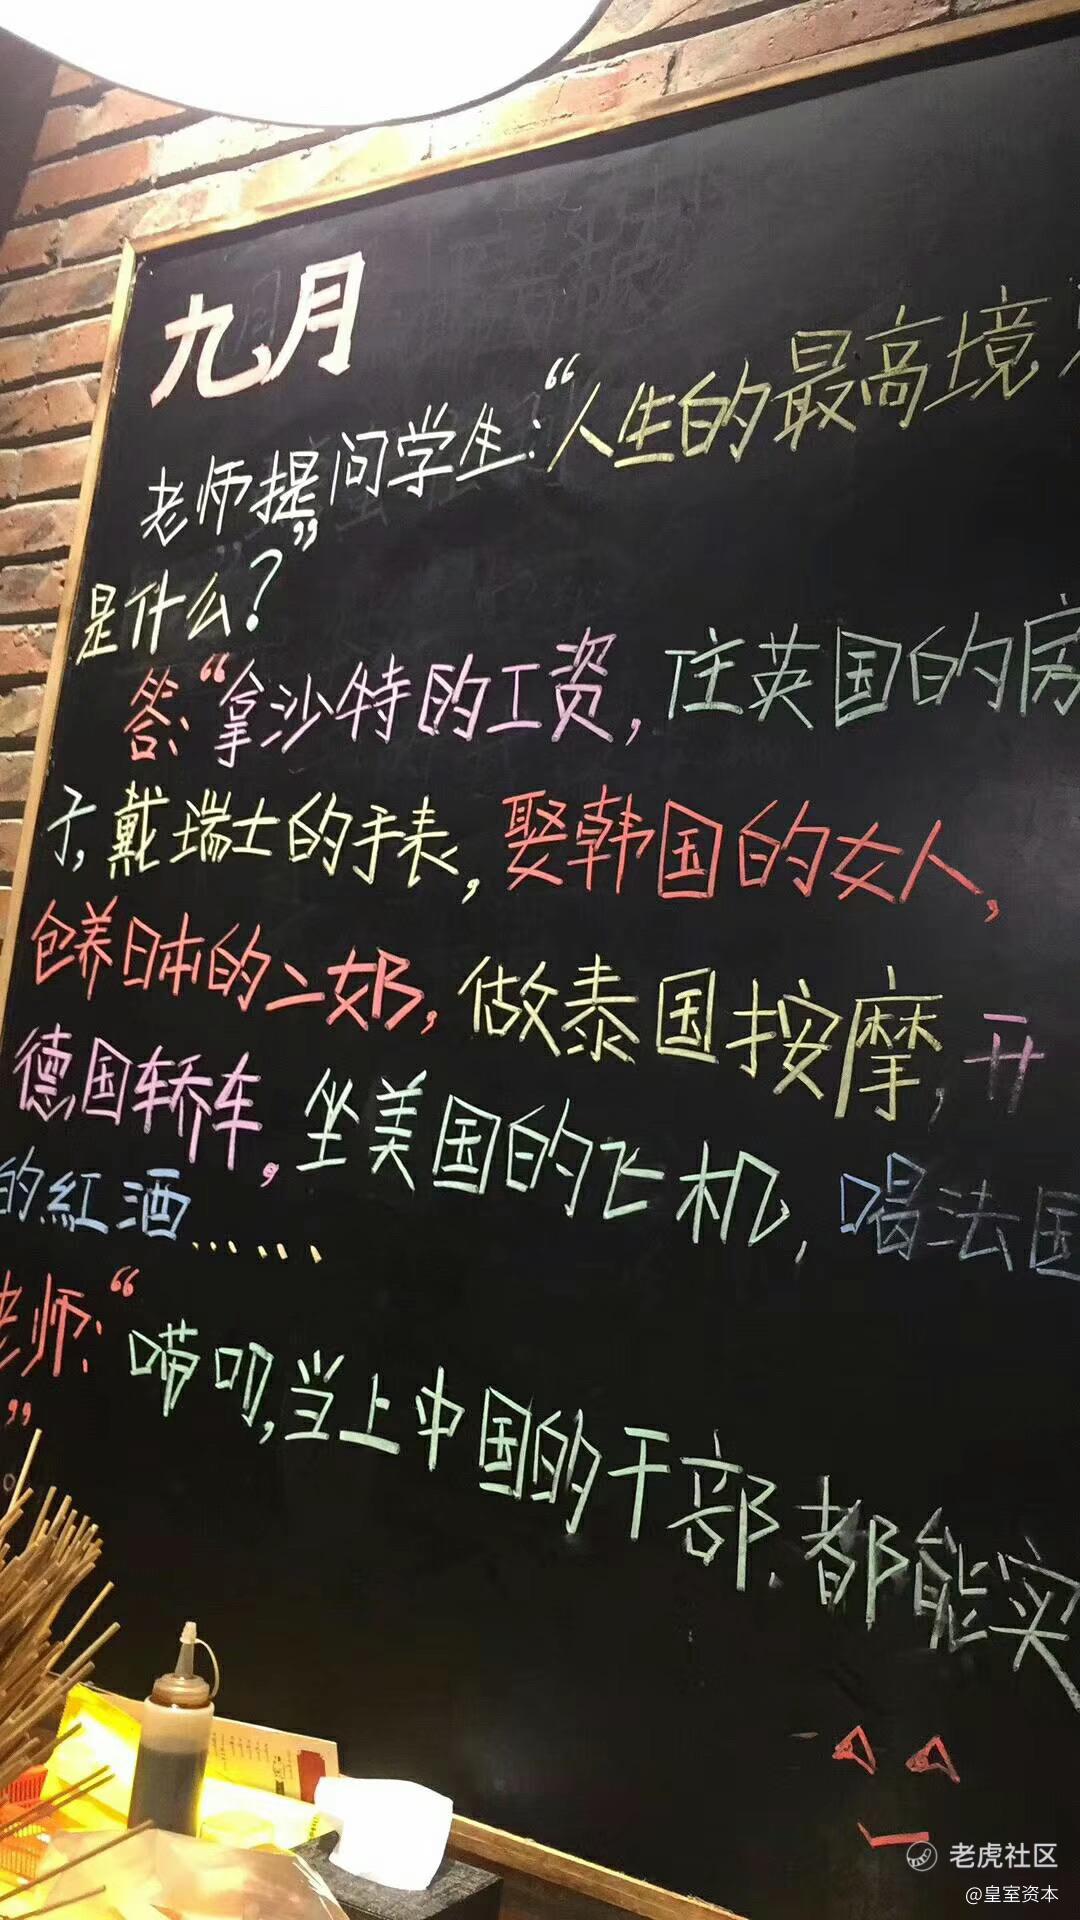 九月
老师提问学生:“人生的最高境
是什么?”
答:“拿沙特的工资,住英国的房
子,戴瑞士的手表,娶韩国的女人,
包养日本的二奶,做泰国按摩,开
德国轿车。坐美国的飞机,喝法国
的紅酒……
老师:“唠叨,当上中国的干部.都能实
”
老虎社区
@皇室资本